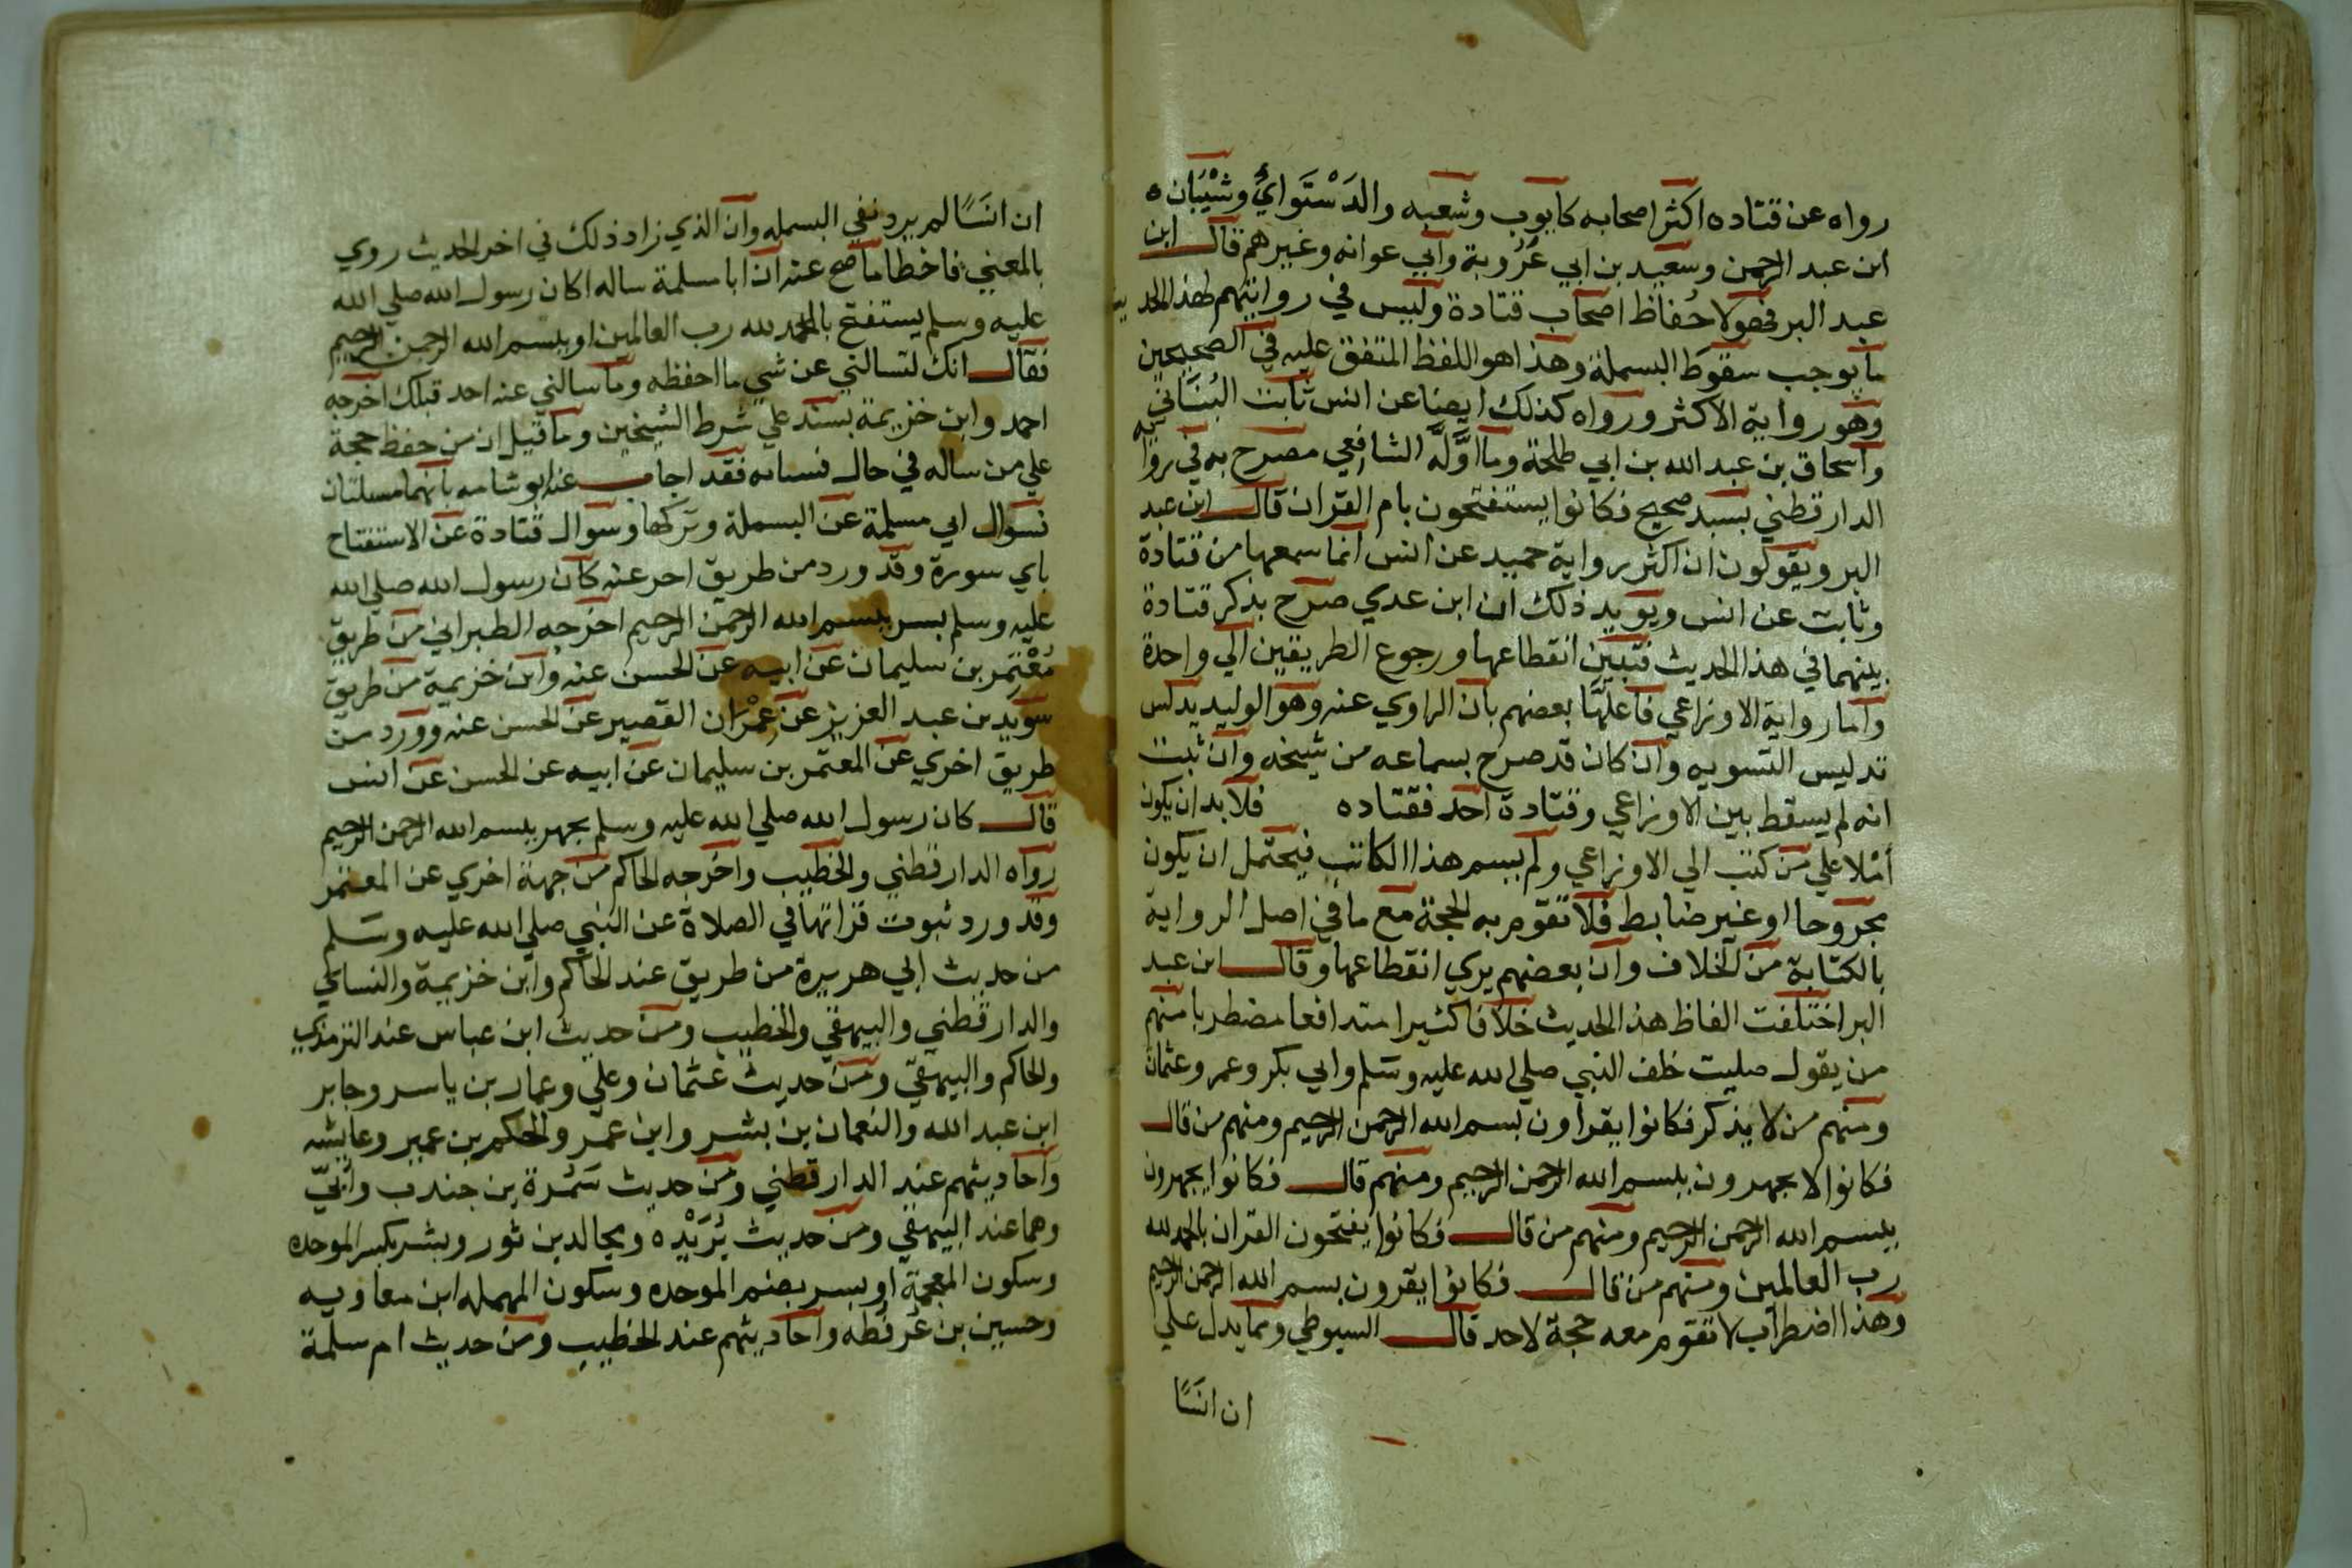 رواه عن قتاده اكثر اصحابه كايوب وشعبه والدَسْتَوايُ وشَيْبَان ه
ابن عبد الرحمن وسعيد بن ابي عَرُوبة وابي عوانه وغيرهم قال ابن
عبد البر فهولا حُفاظ اصحاب قتادة وليس في روايتهم لهذ الحديث
ما يوجب سقوط البسملة وهذا هو اللفظ المتفق عليه في الصحيحين
وهو رواية الاكثر ورواه كذلك ايضا عن انس ثابت البُنَاني
واسحاق بن عبد الله بن ابي طلحة وما اوَّلَه الشافعي مصرح به في رواية
الدارقطني بسند صحيح فكانوا يستفتحون بام القران قال ابن عبد
البر ويقولون ان اكثر رواية حميد عن انس انما سمعها من قتادة
وثابت عن انس ويويد ذلك ان ابن عدي صرح بذكر قتادة
بينهما في هذا الحديث فتبين انقطاعها ورجوع الطريقين الي واحدة
واما رواية الاوزاعي فاعلَّها بعضهم بان الراوي عنه وهو الوليد يدلس
تدليس التسويه وان كان قد صرح بسماعه من شيخه وان ثبت
انه لم يسقط بين الاوزاعي وقتادة احد فقتاده فلا بد ان يكون
أمْلا علي من كتب الي الاوزاعي ولم يسم هذا الكاتب فيحتمل ان يكون
مجروحا او غير ضابط فلا تقوم به الحجة مع ما في اصل الرواية
بالكتابة من الخلاف وان بعضهم يري انقطاعها وقال ابن عبد
البر اختلفت الفاظ هذ الحديث خلافا كثيرا متدافعا مضطربا منهم
من يقول صليت خلف النبي صلي الله عليه وسلم وابي بكر وعمر وعثمان
ومنهم من لا يذكر فكانوا يقراون بسم الله الرحمن الرحيم ومنهم من قال
فكانوا لا يجهرون ببسم الله الرحمن الرحيم ومنهم قال فكانوا يجهرون
ببسم الله الرحمن الرحيم ومنهم من قال فكانوا يفتحون القران بالحمد لله
رب العالمين ومنهم من قال فكانوا يقرون بسم الله الرحمن الرحيم
وهذا اضطراب لا تقوم معه حجة لاحد قال السيوطي ومما يدل علي
ان انسًا
ان انسًا لم يرد نفي البسمله وان الذي زاد ذلك في اخر الحديث روي
بالمعني فاخطا ما صح عنه ان ابا سلمة ساله اكان رسول الله صلي الله
عليه وسلم يستفتح بالحمد لله رب العالمين او ببسم الله الرحمن الرحيم
فقال انك لتسالني عن شي ما احفظه وما سالني عنه احد قبلك اخرجه
احمد وابن خزيمة بسند علي شرط الشيخين وما قيل ان من حفظ حجة
علي من ساله في حال نسيانه فقد اجاب عنه ابو شامه بانهما مسلتان
فسوال ابي مسلمة عن البسملة وتركها وسوال قتادة عن الاستفتاح
باي سورة وقد ورد من طريق اخر عنه كان رسول الله صلي الله
عليه وسلم يسر ببسم الله الرحمن الرحيم اخرجه الطبراني من طريق
مُعْتَمِر بن سليمان عن ابيه عن الحسن عنه وابن خزيمة من طريق
سويد بن عبد العزيز عن عِمْرَان القصير عن الحسن عنه وورد من
طريق اخري عن المعتمر بن سليمان عن ابيه عن الحسن عن انس
قال كان رسول الله صلي الله عليه وسلم يجهر ببسم الله الرحمن الرحيم
رواه الدارقطني والخطيب واخرجه الحاكم من جهة اخري عن المعتمر
وقد ورد ثبوت قراتها في الصلاة عن النبي صلي الله عليه وسلم
من حديث ابي هريرة من طريق عند الحاكم وابن خزيمة والنساي
والدارقطني والبيهقي والخطيب ومن حديث ابن عباس عند الترمذي
والحاكم والبيهقي ومن حديث عثمان وعلي وعمار بن ياسر وجابر
ابن عبد الله والنعمان بن بشر وابن عمر والحكم بن عمير وعايشه
واحاديثهم عند الدارقطني ومن حديث سَمُرة بن جندب وأبَيّ
وهما عند البيهقي ومن حديث بُرَيْده ومجالد بن ثور وبشر بكسر الموحده
وسكون المعجمة او بسر بضم الموحده وسكون المهمله ابن معاويه
وحسين بن عُرفُطه واحاديثهم عند الخطيب ومن حديث ام سلمة